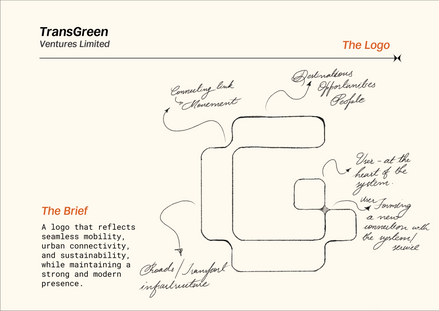 TransGreen
Ventures Limited
The Logo
Connecting link
Movement
Destinations
Opportunities
People
User - at the
heart of the
system.
user Forming
a new
connection with
the system/
service
The Brief
A logo that reflects
seamless mobility,
urban connectivity,
and sustainability,
while maintaining a
strong and modern
presence.
Roads/Transport
infrastructure